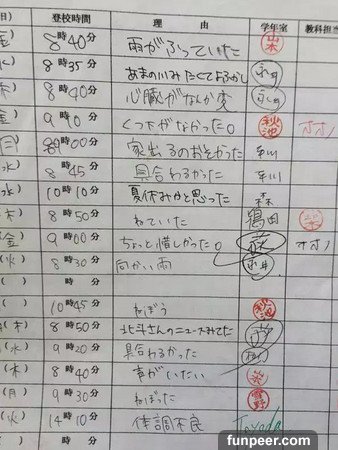 日) 登校時間 理由 学年室 教科担当
(金) 8時40分 雨がふっていた 山本
8時35分 あまの川みたくてよふかし 永井
(木) 8時40分 心臓がなんか変 永井
(金) 9時10分 くつ下がなかった。 秋池 オオノ
(月) 9時00分 家出るのおそかった 平川
(水) 8時45分 具合わるかった 平川
(水) 10時10分 夏休みかと思った 森
(木) 8時50分 ねていた 鶴田
(金) 9時00分 ちょっと惜しかった。 オオノ
(火) 8時30分 向かい雨 永井
( ) 時 分
( ) 10時45分 ねぼう 秋池
(木) 8時50分 北斗さんのニュースみてた
(水) 9時20分 具合わるかった
(木) 8時40分 頭がいたい
(月) 9時30分 ねぼった
(火) 14時10分 体調不良 Toyoda
( ) 時 分
funpeer.com